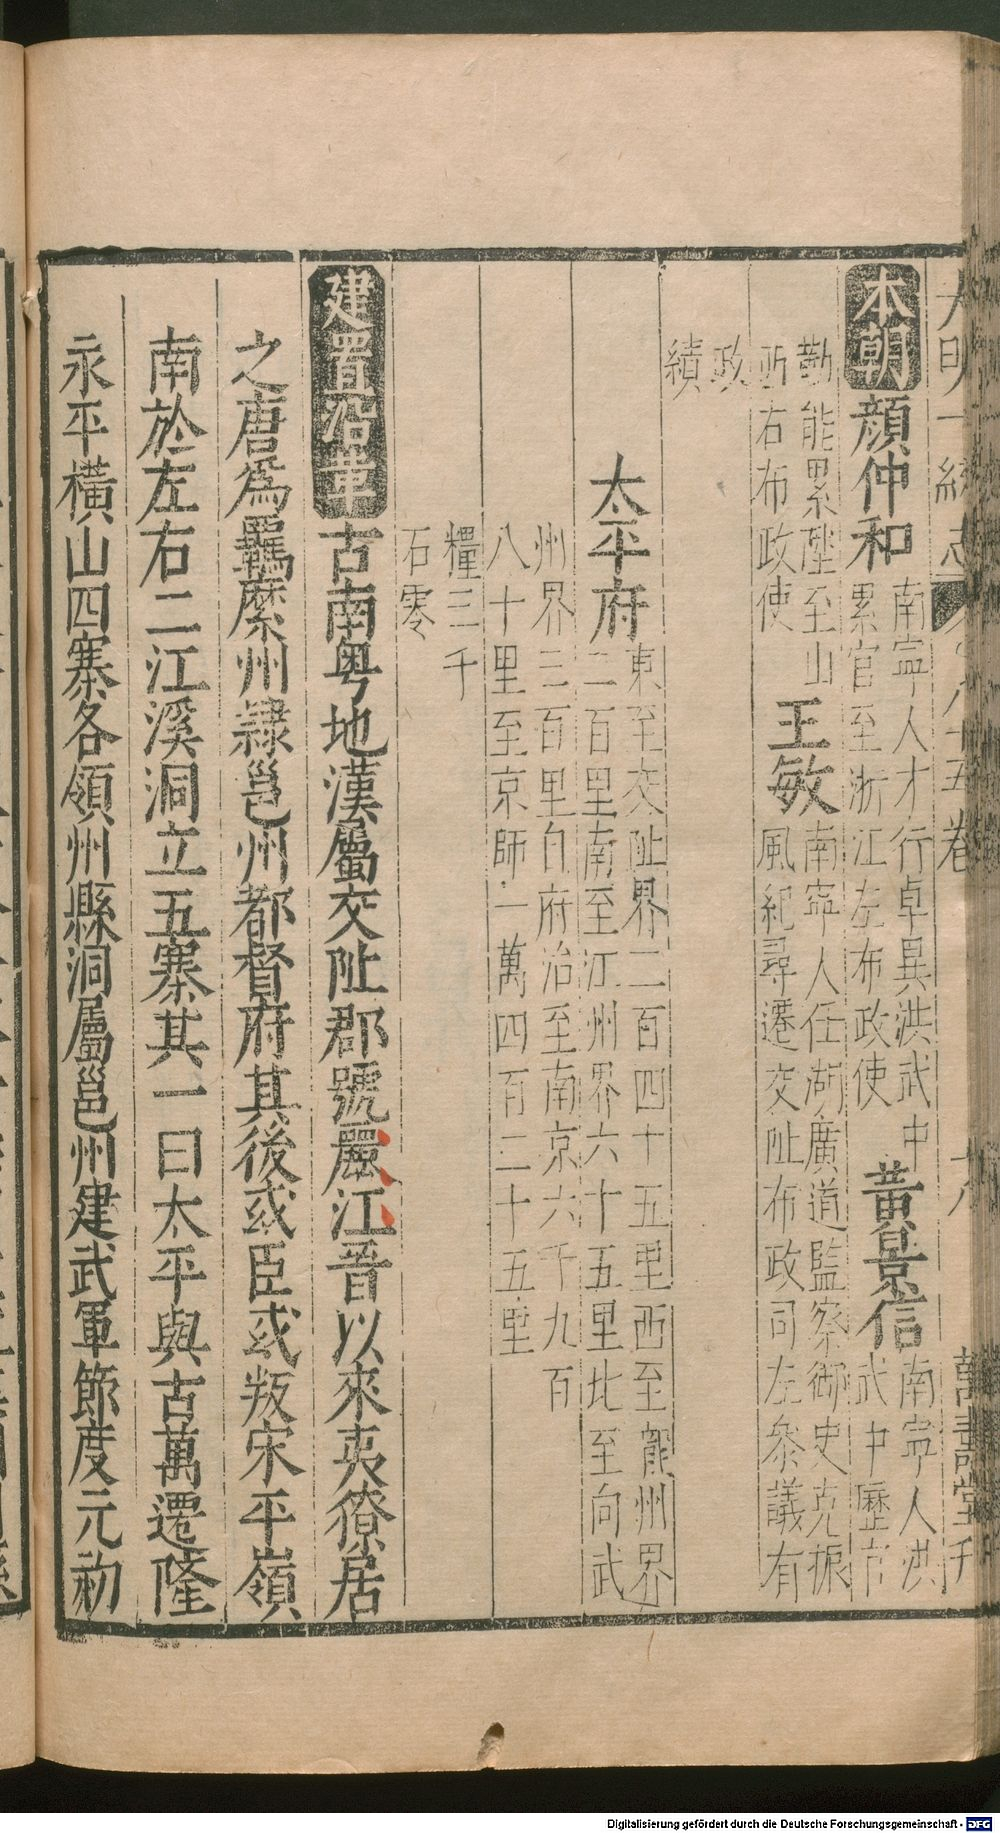 大明一統志 八十五卷 十八 萬壽堂刊
本朝顏仲和
南寧人才行卓異洪武中
累官至浙江左布政使
黃景信
南寧人洪
武中歷官
勤能累陞至山
西右布政使
王敏
南寧人任湖廣道監察御史克振
風紀尋遷交阯布政司左參議有
政
績
太平府
東至交阯界二百四十五里西至龍州界
二百里南至江州界六十五里北至向武
州界三百里自府治至南京六千九百
八十里至京師一萬四百二十五里
糧三千
石零
建置沿革古南粵地漢屬交阯郡號麗江晉以來夷獠居
之唐為羈縻州隸邕州都督府其後或臣或叛宋平嶺
南於左右二江溪洞立五寨其一曰太平與古萬遷隆
永平橫山四寨各領州縣洞屬邕州建武軍節度元初
Digitalisierung gefördert durch die Deutsche Forschungsgemeinschaft - DFG